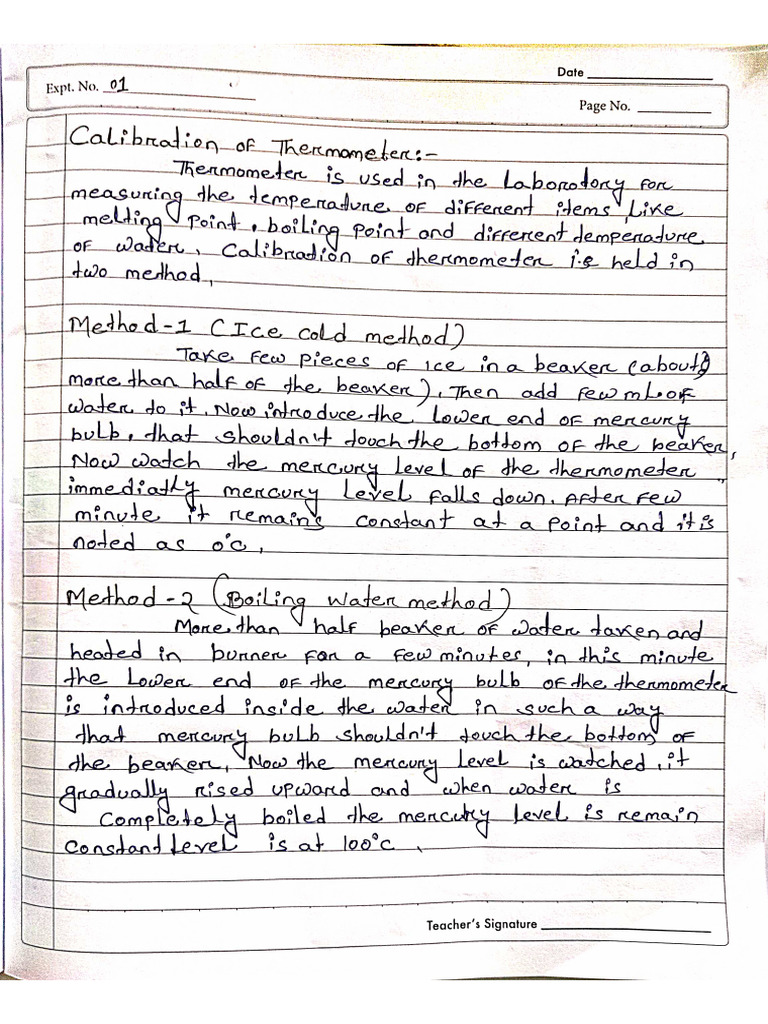 Date
Expt. No. 01
Page No.
Calibration of Thermometer:-
Thermometer is used in the Laborotory for
measuring the temperature of different items Like
melting point, boiling point and different temperature
of water. Calibration of thermometer i.e held in
two method.
Method-1 (Ice cold method)
Take few pieces of ice in a beaker (about
more than half of the beaker). Then add few mL of
water to it. Now introduce the Lower end of mercury
bulb, that shouldn't touch the bottom of the beaker,
Now watch the mercury level of the thermometer
immediatly mercury Level falls down. After few
minute it remain's constant at a point and it is
noted as 0°c.
Method-2 (Boiling water method)
More than half beaker of water taken and
heated in burner for a few minutes, in this minute
the Lower end of the mercury bulb of the thermometer
is introduced inside the water in such a way
that mercury bulb shouldn't touch the bottom of
the beaker. Now the mercury Level is watched, it
gradually rised upward and when water is
Completely boiled the mercury level is remain
constant Level is at 100°c.
Teacher's Signature